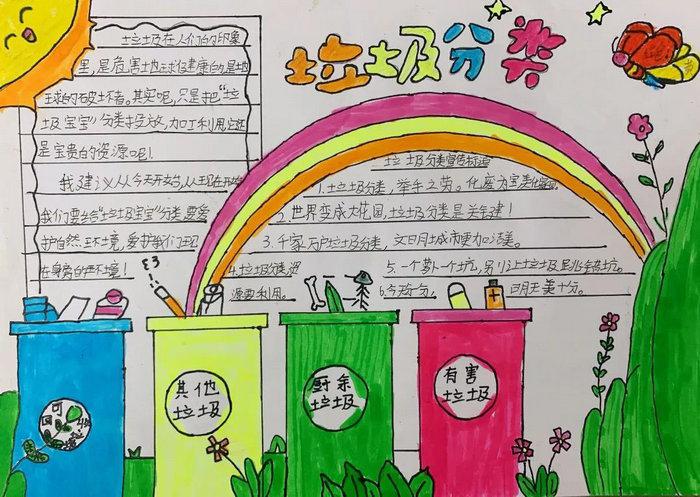 垃圾分类
垃圾在人们的印象
里,是危害地球健康的,是地
球的破坏者。其实呢,只是把“垃
圾宝宝”分类投放,加工利用,它还
是宝贵的资源呢!
我建议从今天开始,从现在开始
我们要给“垃圾宝宝”分类,要爱
护自然环境,爱护我们现
在身旁的环境!
垃圾分类宣传标语
1.垃圾分类,举手之劳。化废为宝,美化家园
2.世界变成大花园,垃圾分类是关键!
3.千家万户垃圾分类,文明城市更加洁美。
4.垃圾分类,资
源要利用。
5.一个萝卜一个坑,别让垃圾乱转坑。
6.今天分一分,明天美十分。
可回收垃圾
其他
垃圾
厨余
垃圾
有害
垃圾